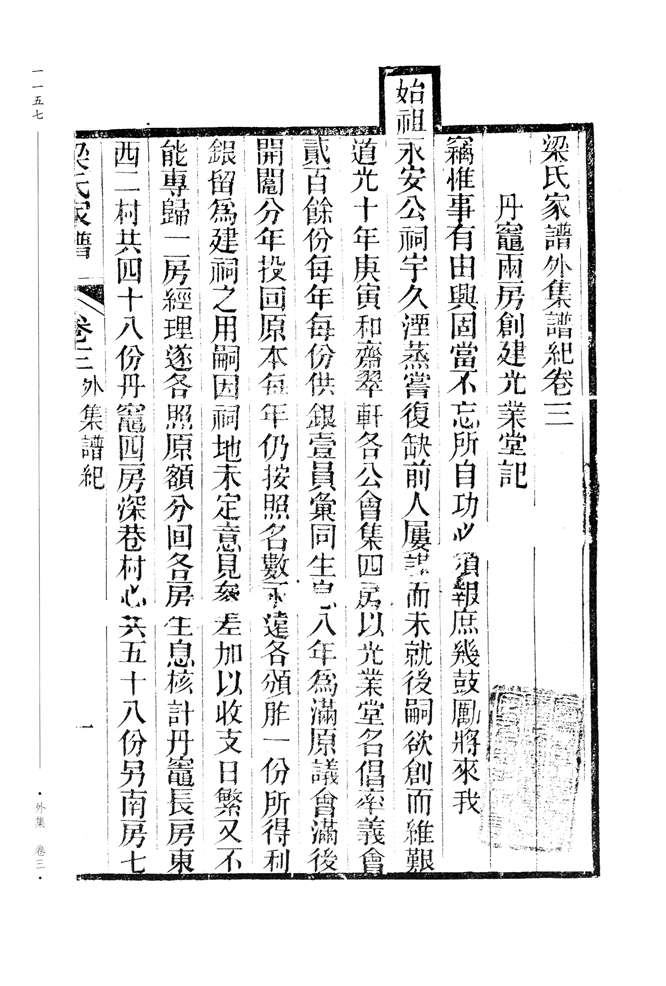 梁氏家譜外集譜紀卷三
丹竈兩房創建光業堂記
竊惟事有由興固當不忘所自功必須報庶幾鼓勵將來我
始祖永安公祠宇久湮蒸嘗復缺前人屢謀而未就後嗣欲創而維艱
道光十年庚寅和齋翠軒各公會集四房以光業堂名倡率義會
貳百餘份每年每份供銀壹員彙同生息八年爲滿原議會滿後
開鬮分年投回原本每年仍按照名數不違各頒胙一份所得利
銀留爲建祠之用嗣因祠地未定意見參差加以收支日繁又不
能專歸一房經理遂各照原額分回各房生息核計丹竈長房東
西二村共四十八份丹竈四房深巷村心共五十八份另南房七
梁氏家譜 卷三 外集譜紀 一
一一五七
·外集 卷三·